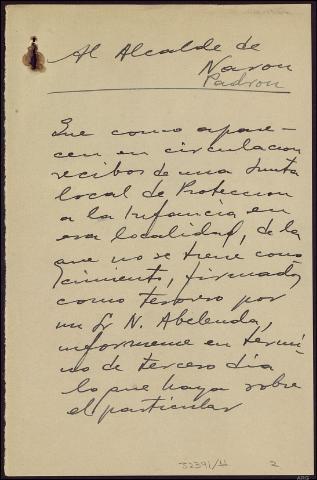 Al Alcalde de
Naron
Padron
Que como apare-
cen en circulacion
recibos de una Junta
local de Proteccion
a la Infancia en
esa localidad, de la
que no se tiene cono-
cimiento, firmados
como tesorero por
un Sr N. Abelenda,
informeme en termi-
no de tercero dia
lo que haya sobre
el particular
J2391/11 2
ARG